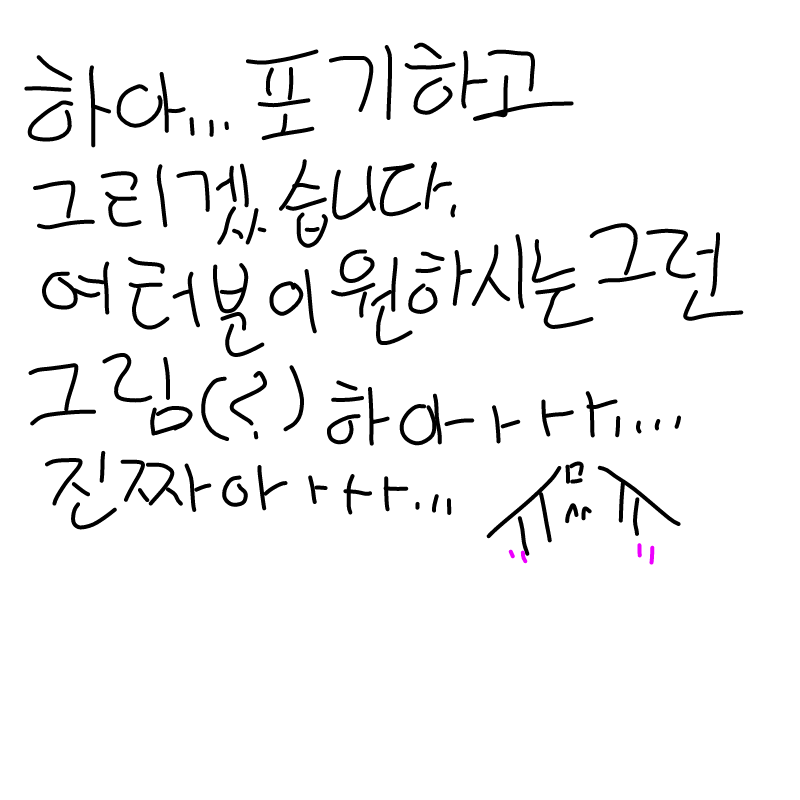 하아... 포기하고
그리겠습니다.
여터분이 원하시는 그런
그림(?) 하아ㅏㅏㅏ....
진짜아ㅏㅏㅏ... ㅠㅁㅠ